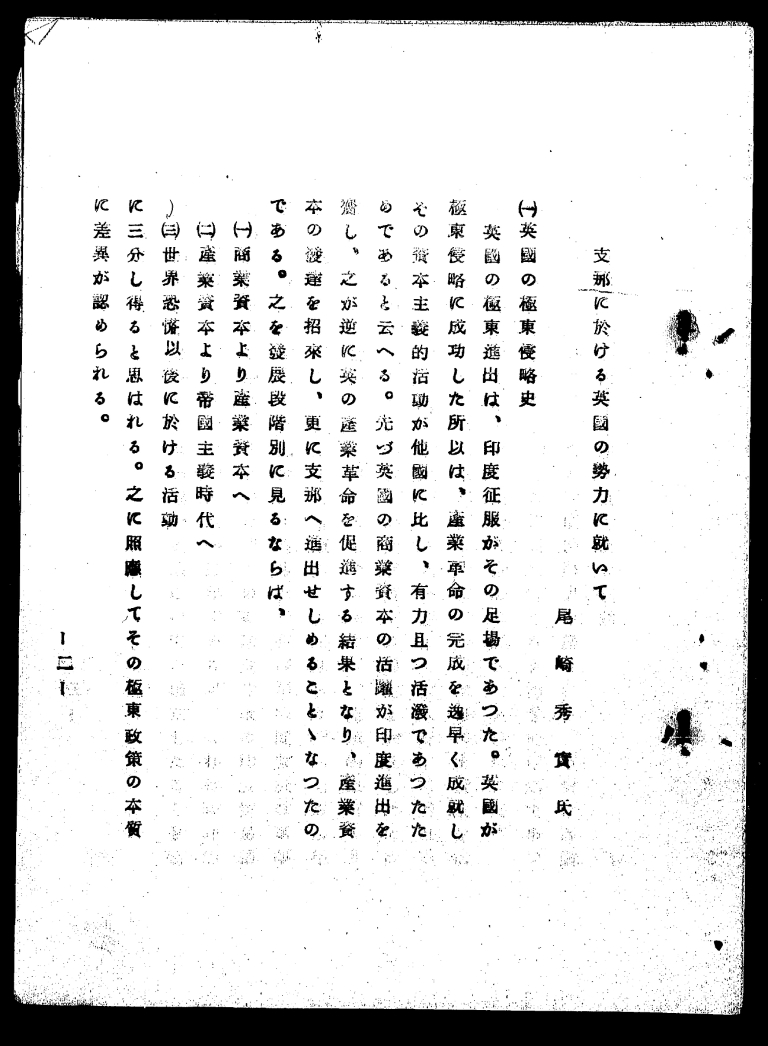 支那に於ける英國の勢力に就いて
尾崎秀實氏
㈠英國の極東侵略史
英國の極東進出は、印度征服がその足場であつた。英國が
極東侵略に成功した所以は、産業革命の完成を逸早く成就し
その資本主義的活動が他國に比し、有力且つ活潑であつたた
めであると云へる。先づ英國の商業資本の活躍が印度進出を
齎し、之が逆に英の産業革命を促進する結果となり、産業資
本の發達を招來し、更に支那へ進出せしめることゝなつたの
である。之を發展段階別に見るならば、
㈠商業資本より産業資本へ
㈡産業資本より帝國主義時代へ
㈢世界恐慌以後に於ける活動
に三分し得ると思はれる。之に照應してその極東政策の本質
に差異が認められる。
ー二ー